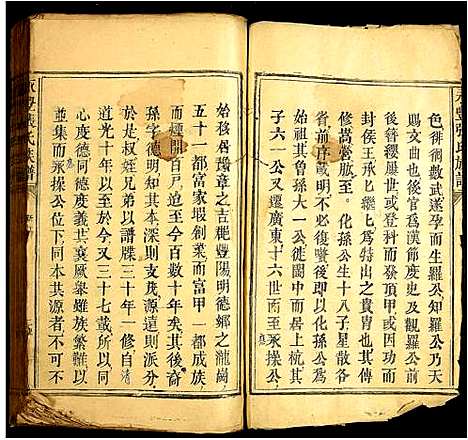 永豐張氏族譜
色徘徊數武遂孕而生羅公知羅公乃天
賜文曲之後官為漢節度史及觀羅公前
後簪纓屢世或登科而發項甲或因功而
承封王侯
為特出之貴也其傳
嵩
勝至
化孫公生十八子星散各
省前序或明不必復贅後即以化孫公為
始其魯孫大一公徙閩中杭川居上杭其
子六一公又遷廣東十六世而至承操公
始移居豫章之古艳豐陽明德鄉之瀧崗
五十一都富家塅創業而富甲一都成族
而煙開百戶迨至今百數十年矣其後裔
孫字德明其本深則支茂源遠則流派分
於是叔姪兄弟以譜牒三十年一修自清
道光十年以至於今又三十七載所以同
心度德同德度義共襄厥舉雖族繁難以
並集而承操公位下同本共源者不可不
永豐張氏族譜